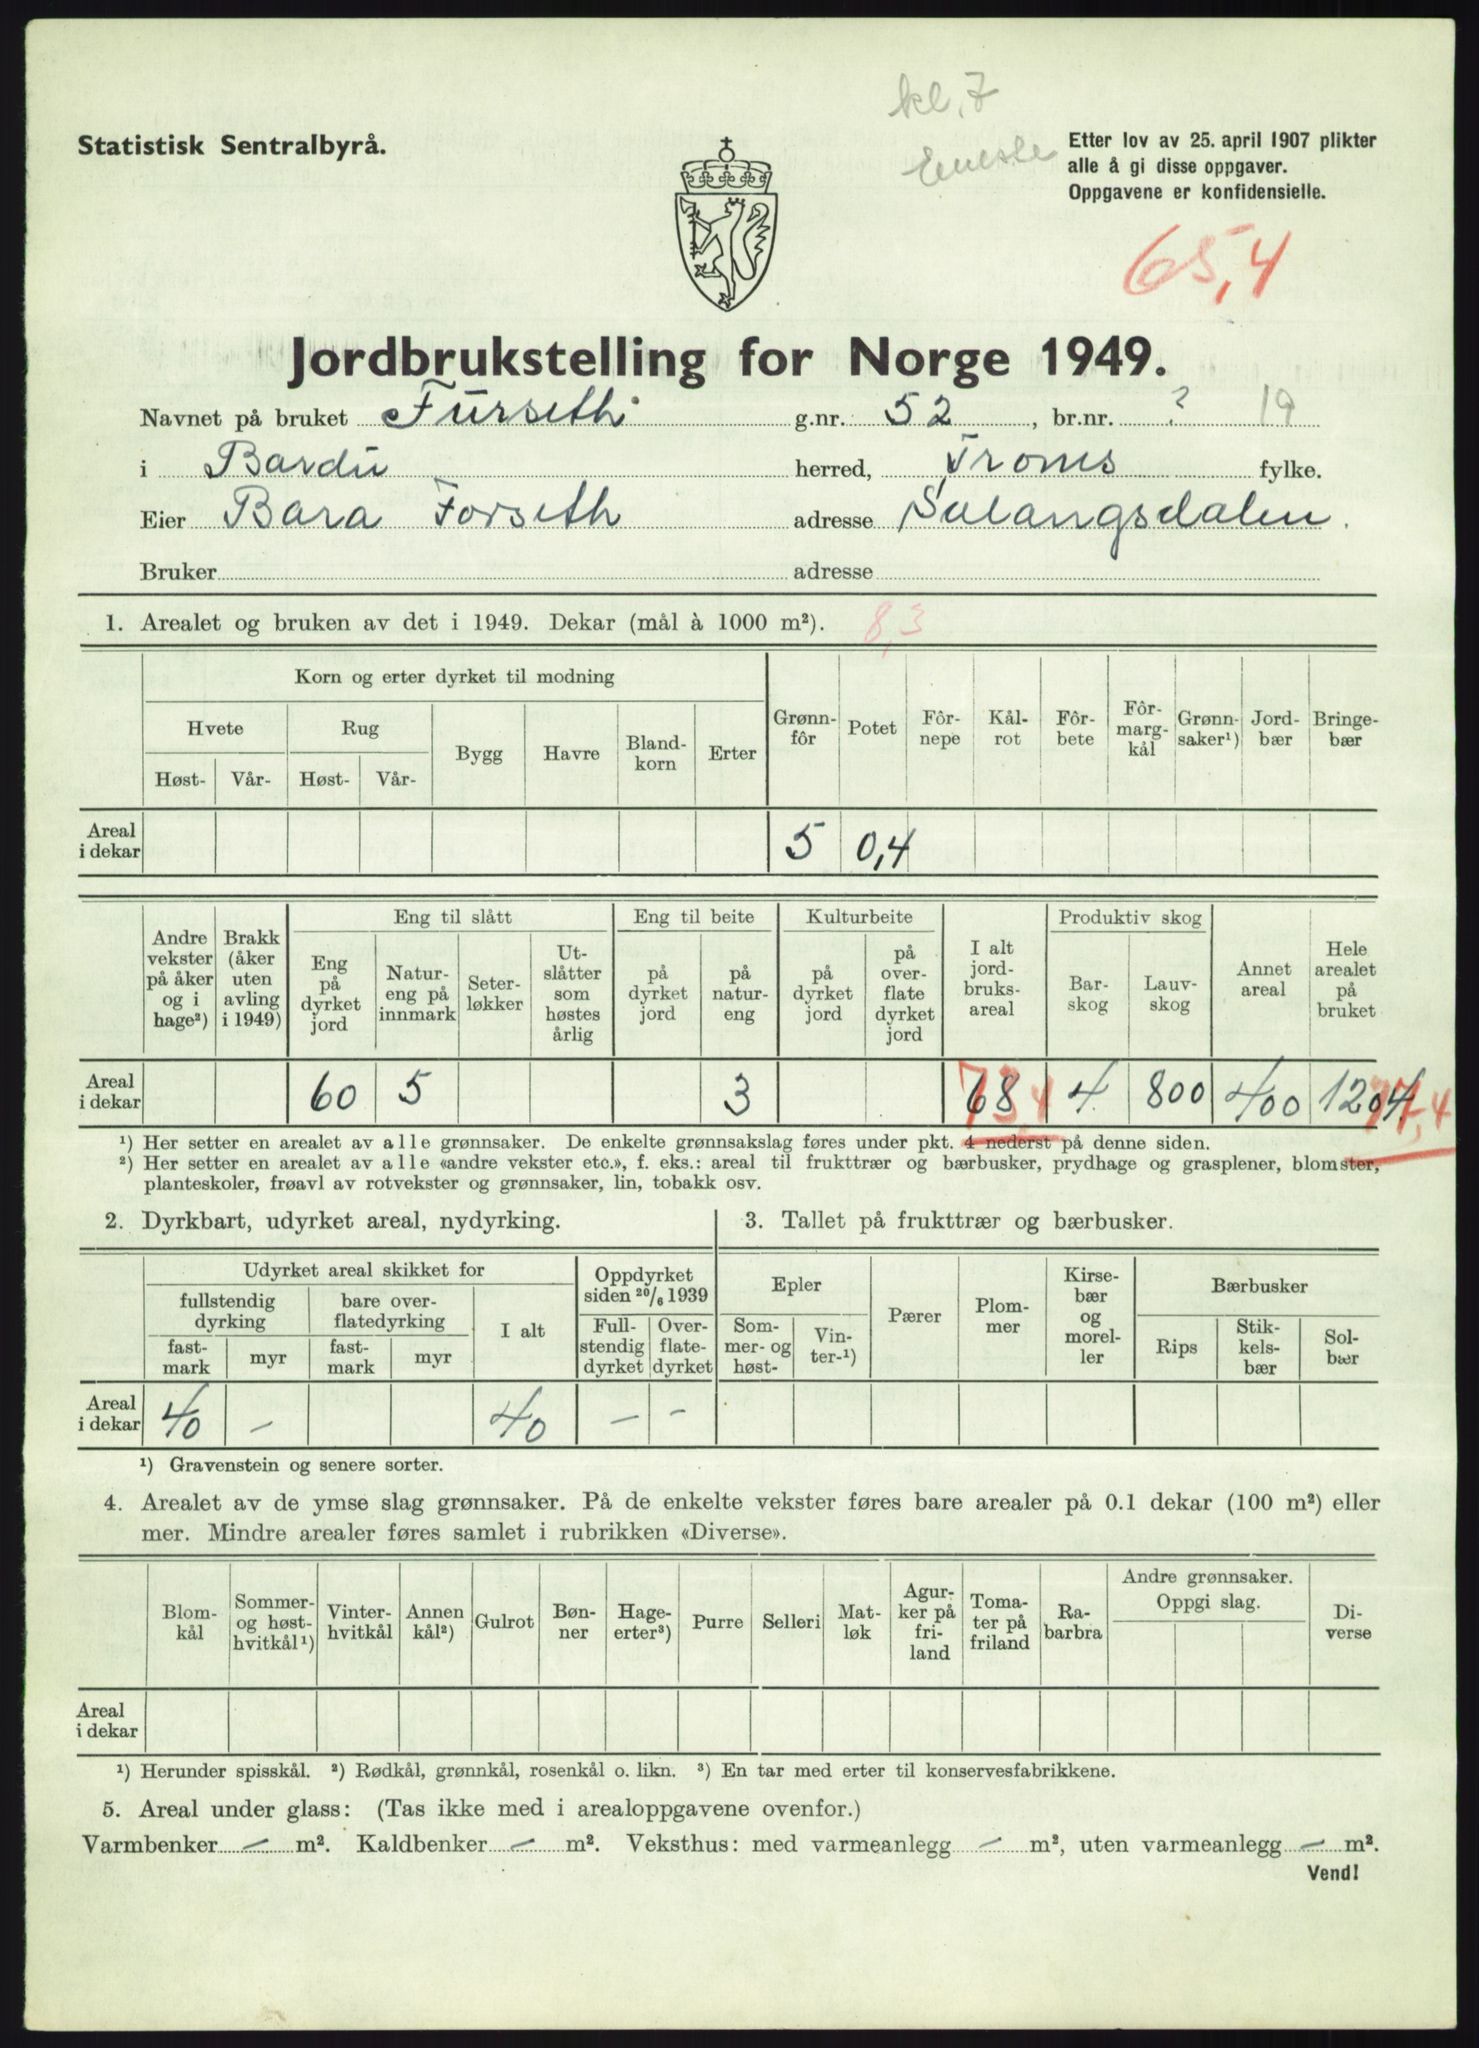 kl. 7
Statistisk Sentralbyrå.
Etter lov av 25. april 1907 plikter
alle å gi disse oppgaver.
Oppgavene er konfidensielle.
65,4
Jordbrukstelling for Norge 1949.
Navnet på bruket Furseth g.nr. 52, br.nr. ? 19
i Bardu herred, Troms fylke.
Eier Bara Forseth adresse Salangsdalen.
Bruker adresse
1. Arealet og bruken av det i 1949. Dekar (mål à 1000 m²). 8,3
Korn og erter dyrket til modning
Hvete Rug Bygg Havre Bland-korn Erter Grønn-fôr Potet Fôr-nepe Kål-rot Fôr-bete Fôr-marg-kål Grønn-saker¹) Jord-bær Bringe-bær
Høst- Vår- Høst- Vår-
Areal i dekar 5 0,4
Eng til slått Eng til beite Kulturbeite Produktiv skog
Andre vekster på åker og i hage²) Brakk (åker uten avling i 1949) Eng på dyrket jord Natur-eng på innmark Seter-løkker Ut-slåtter som høstes årlig på dyrket jord på natur-eng på dyrket jord på over-flate dyrket jord I alt jord-bruks-areal Bar-skog Lauv-skog Annet areal Hele arealet på bruket
Areal i dekar 60 5 3 68 73,4 4 800 400 1204 77,4
¹) Her setter en arealet av alle grønnsaker. De enkelte grønnsakslag føres under pkt. 4 nederst på denne siden.
²) Her setter en arealet av alle «andre vekster etc.», f. eks.: areal til frukttrær og bærbusker, prydhage og grasplener, blomster,
planteskoler, frøavl av rotvekster og grønnsaker, lin, tobakk osv.
2. Dyrkbart, udyrket areal, nydyrking.
Udyrket areal skikket for Oppdyrket siden 20/6 1939
fullstendig dyrking bare over-flatedyrking I alt Full-stendig dyrket Over-flate-dyrket
fast-mark myr fast-mark myr
Areal i dekar 40 – 40 – –
3. Tallet på frukttrær og bærbusker.
Epler Pærer Plom-mer Kirse-bær og morel-ler Bærbusker
Som-mer- og høst- Vin-ter-¹) Rips Stik-kels-bær Sol-bær
¹) Gravenstein og senere sorter.
4. Arealet av de ymse slag grønnsaker. På de enkelte vekster føres bare arealer på 0.1 dekar (100 m²) eller
mer. Mindre arealer føres samlet i rubrikken «Diverse».
Blom-kål Sommer- og høst-hvitkål¹) Vinter-hvitkål Annen kål²) Gulrot Bøn-ner Hage-erter³) Purre Selleri Mat-løk Agur-ker på fri-land Toma-ter på friland Ra-barbra Andre grønnsaker. Oppgi slag. Di-verse
Areal i dekar
¹) Herunder spisskål. ²) Rødkål, grønnkål, rosenkål o. likn. ³) En tar med erter til konservesfabrikkene.
5. Areal under glass: (Tas ikke med i arealoppgavene ovenfor.)
Varmbenker – m². Kaldbenker – m². Veksthus: med varmeanlegg – m², uten varmeanlegg – m².
Vend!